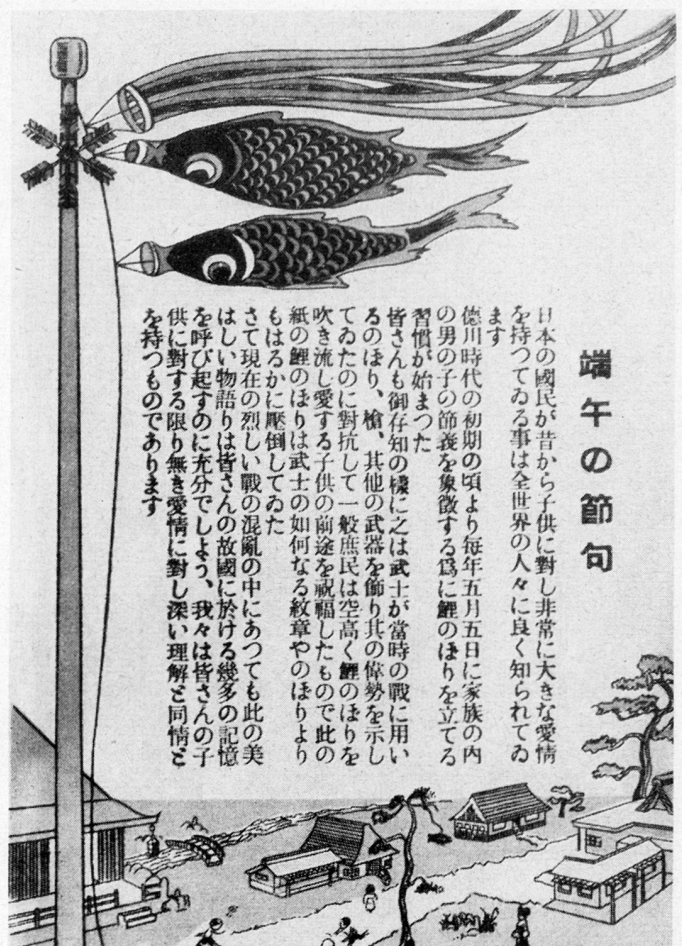 端午の節句
日本の國民が昔から子供に對し非常に大きな愛情
を持つてゐる事は全世界の人々に良く知られてゐ
ます
徳川時代の初期の頃より毎年五月五日に家族の内
の男の子の節義を象徴する爲に鯉のぼりを立てる
習慣が始まつた
皆さんも御存知の樣に之は武士が當時の戰に用い
るのぼり、槍、其他の武器を飾り其の偉勢を示し
てゐたのに對抗して一般庶民は空高く鯉のぼりを
吹き流し愛する子供の前途を祝福したもので此の
紙の鯉のぼりは武士の如何なる紋章やのぼりより
もはるかに壓倒してゐた
さて現在の烈しい戰の混亂の中にあつても此の美
はしい物語りは皆さんの故國に於ける幾多の記憶
を呼び起すのに充分でしよう、我々は皆さんの子
供に對する限り無き愛情に對し深い理解と同情と
を持つものであります